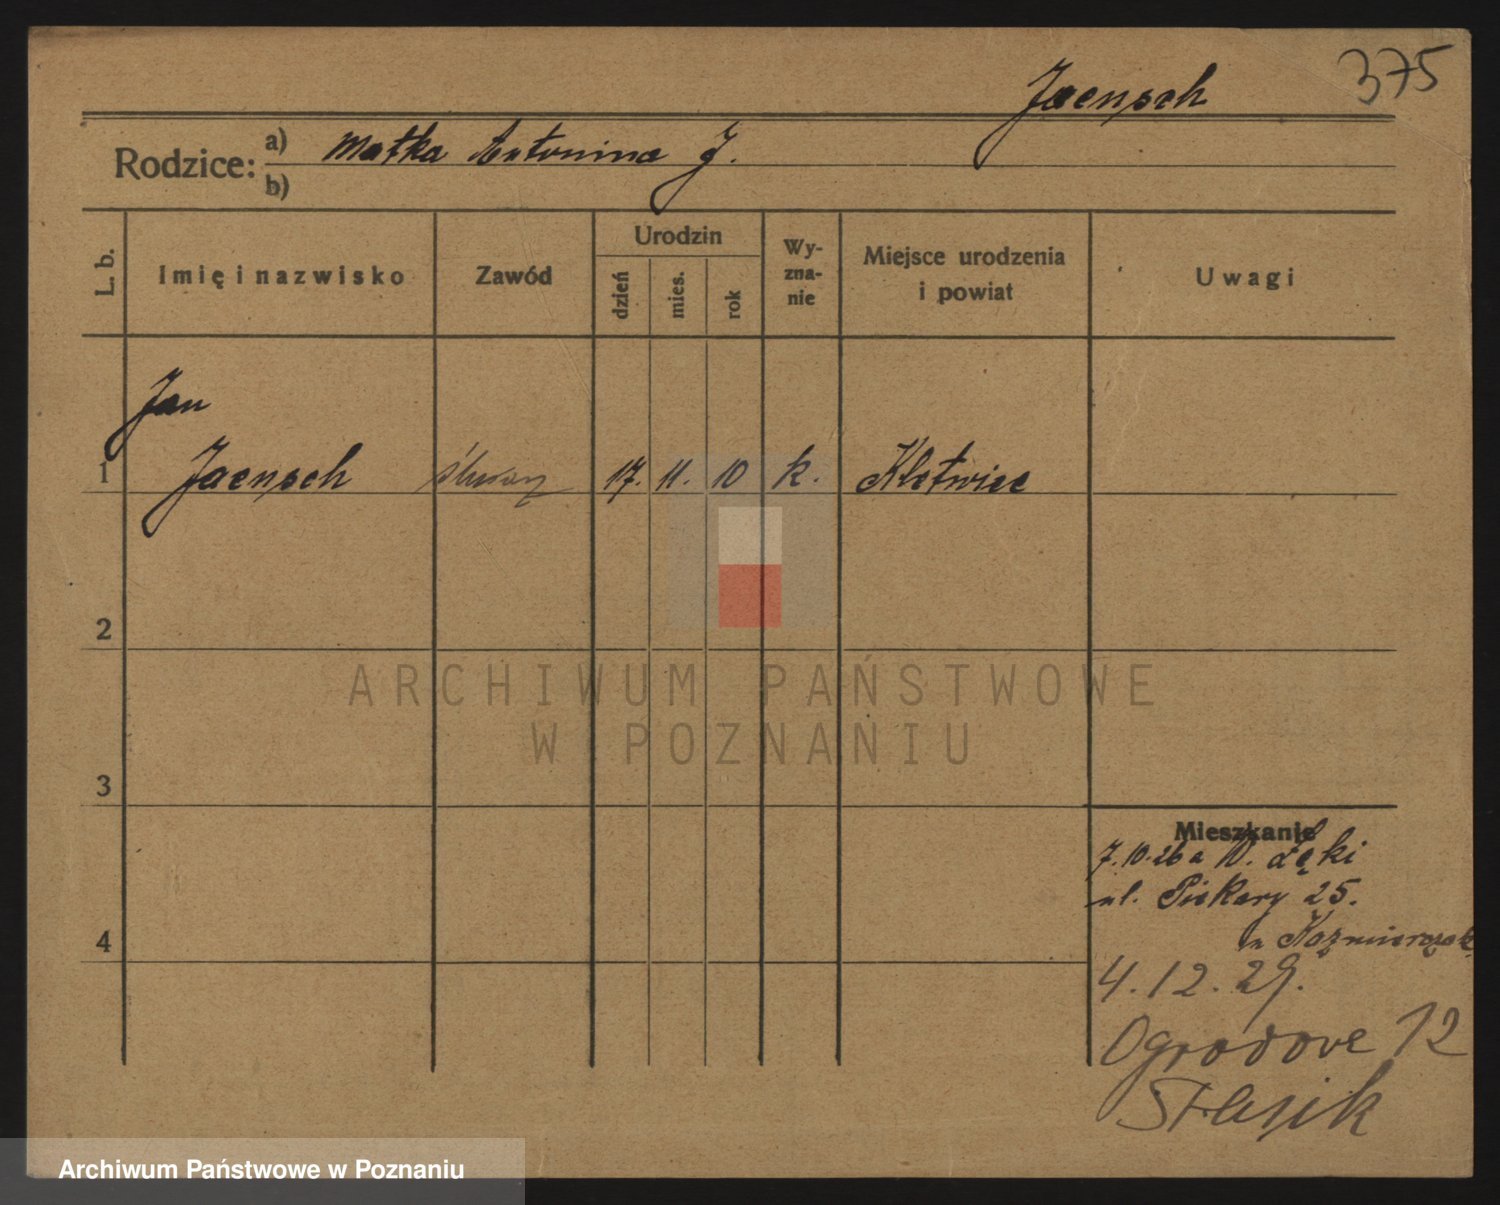 375
Jaensch
Rodzice: a) Matka Antonina J.
b)
L. b. Imię i nazwisko Zawód Urodzin dzień mies. rok Wyzna-nie Miejsce urodzenia i powiat Uwagi
Jan
1 Jaensch ślusarz 17. 11. 10 k. Kletwiec
2
3
Mieszkanie
7.10.26 a W. Łęki
ul. Piekary 25.
4
u Kaźmierczak
4.12.29.
Ogrodowe 12
Stasik
ARCHIWUM PAŃSTWOWE
W POZNANIU
Archiwum Państwowe w Poznaniu